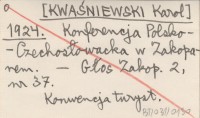 [KWAŚNIEWSKI Karol]
1924. Konferencja Polsko-
-Czechosłowacka w Zakopa-
nem. — Głos Zakop. 2,
nr 37.
Konwencja turyst.